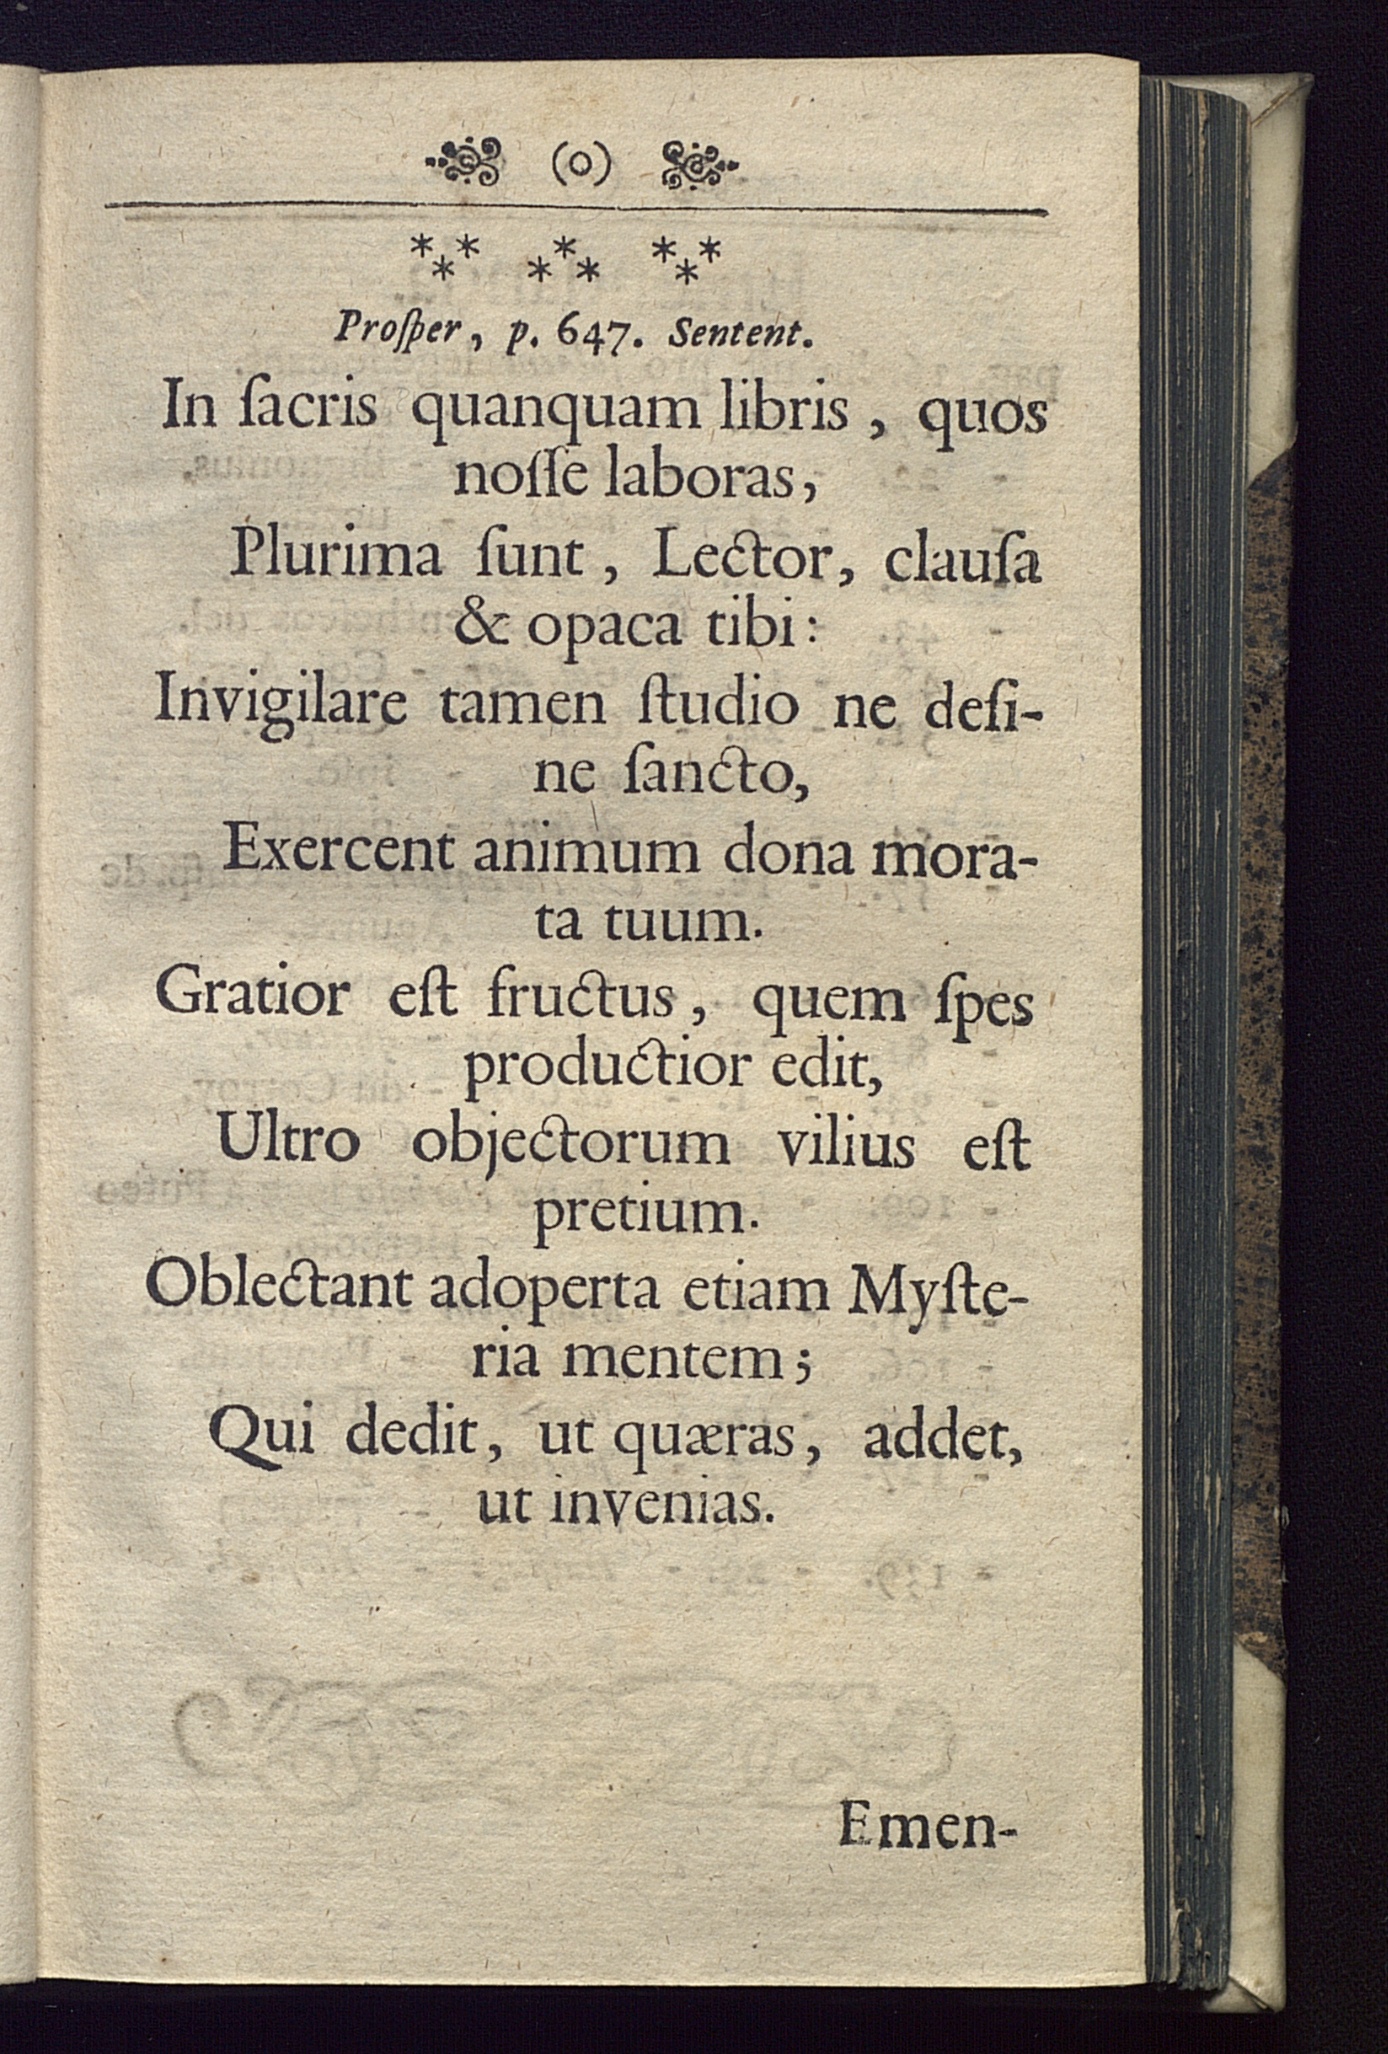 (o)
* * * * * * * * *
Proſper, p. 647. Sentent.
In ſacris quanquam libris, quos
noſſe laboras,
Plurima ſunt, Lector, clauſa
& opaca tibi:
Invigilare tamen ſtudio ne deſi-
ne ſancto,
Exercent animum dona mora-
ta tuum.
Gratior eſt fructus, quem ſpes
productior edit,
Ultro objectorum vilius eſt
pretium.
Oblectant adoperta etiam Myſte-
ria mentem;
Qui dedit, ut quæras, addet,
ut invenias.
Emen-